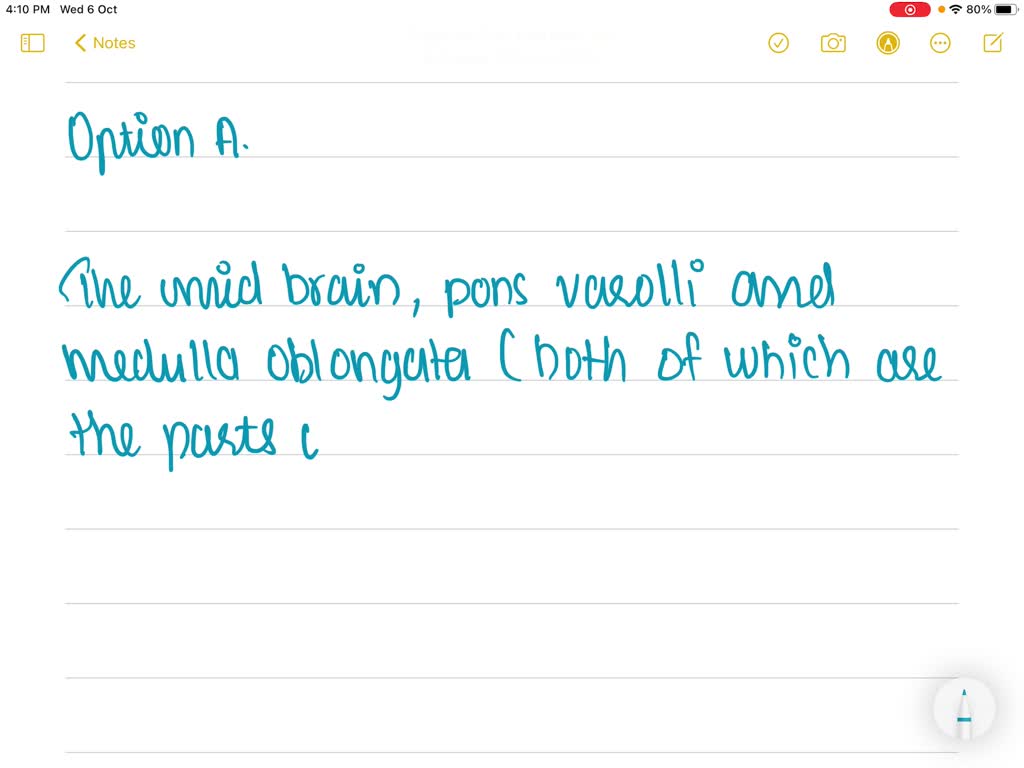 4:10 PM Wed 6 Oct 80%
Notes
Option A.
The mid brain, pons varolli and
medulla oblongata (both of which are
the parts